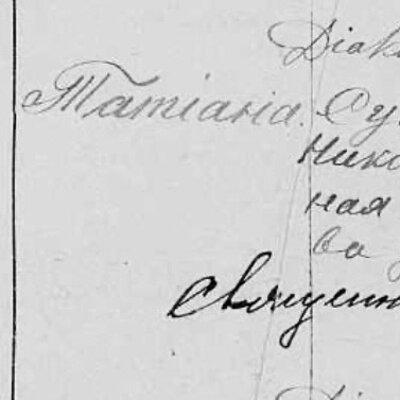 Діак
Татіана. Су
Нико
ная
ва
Священн